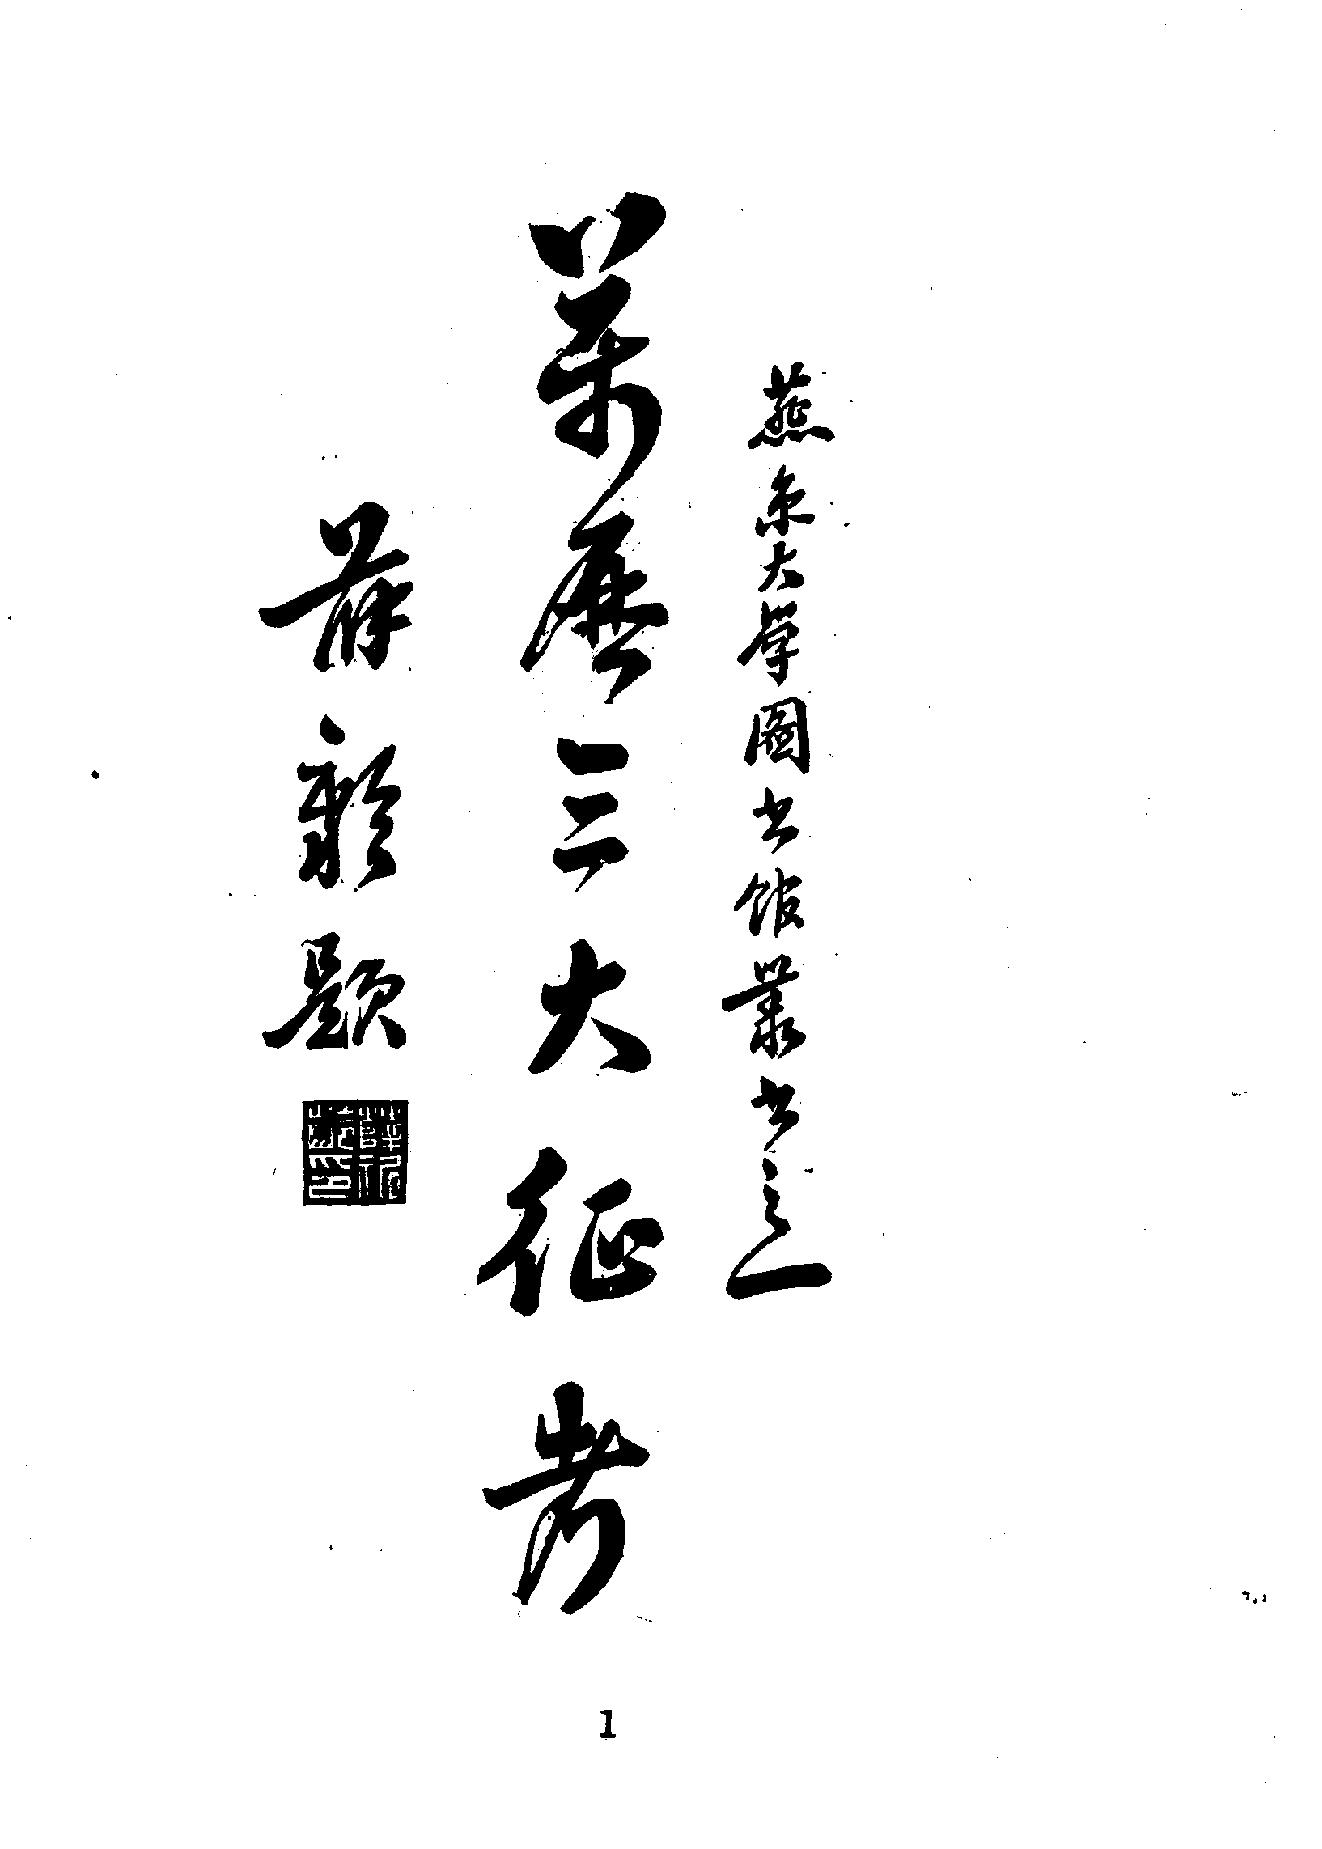 燕京大學圖書館叢書之一
萬曆三大征考
薛題
1